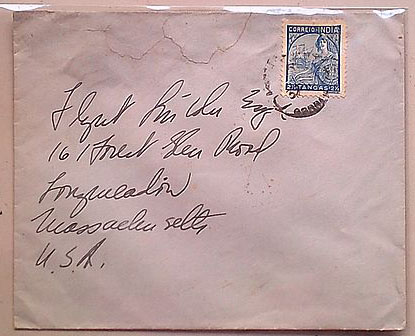 CORREIO INDIA
2½ TANGAS 2½
Flynt Lincoln Esq
16 Forest Glen Road
Longmeadow
Massachusetts
U.S.A.